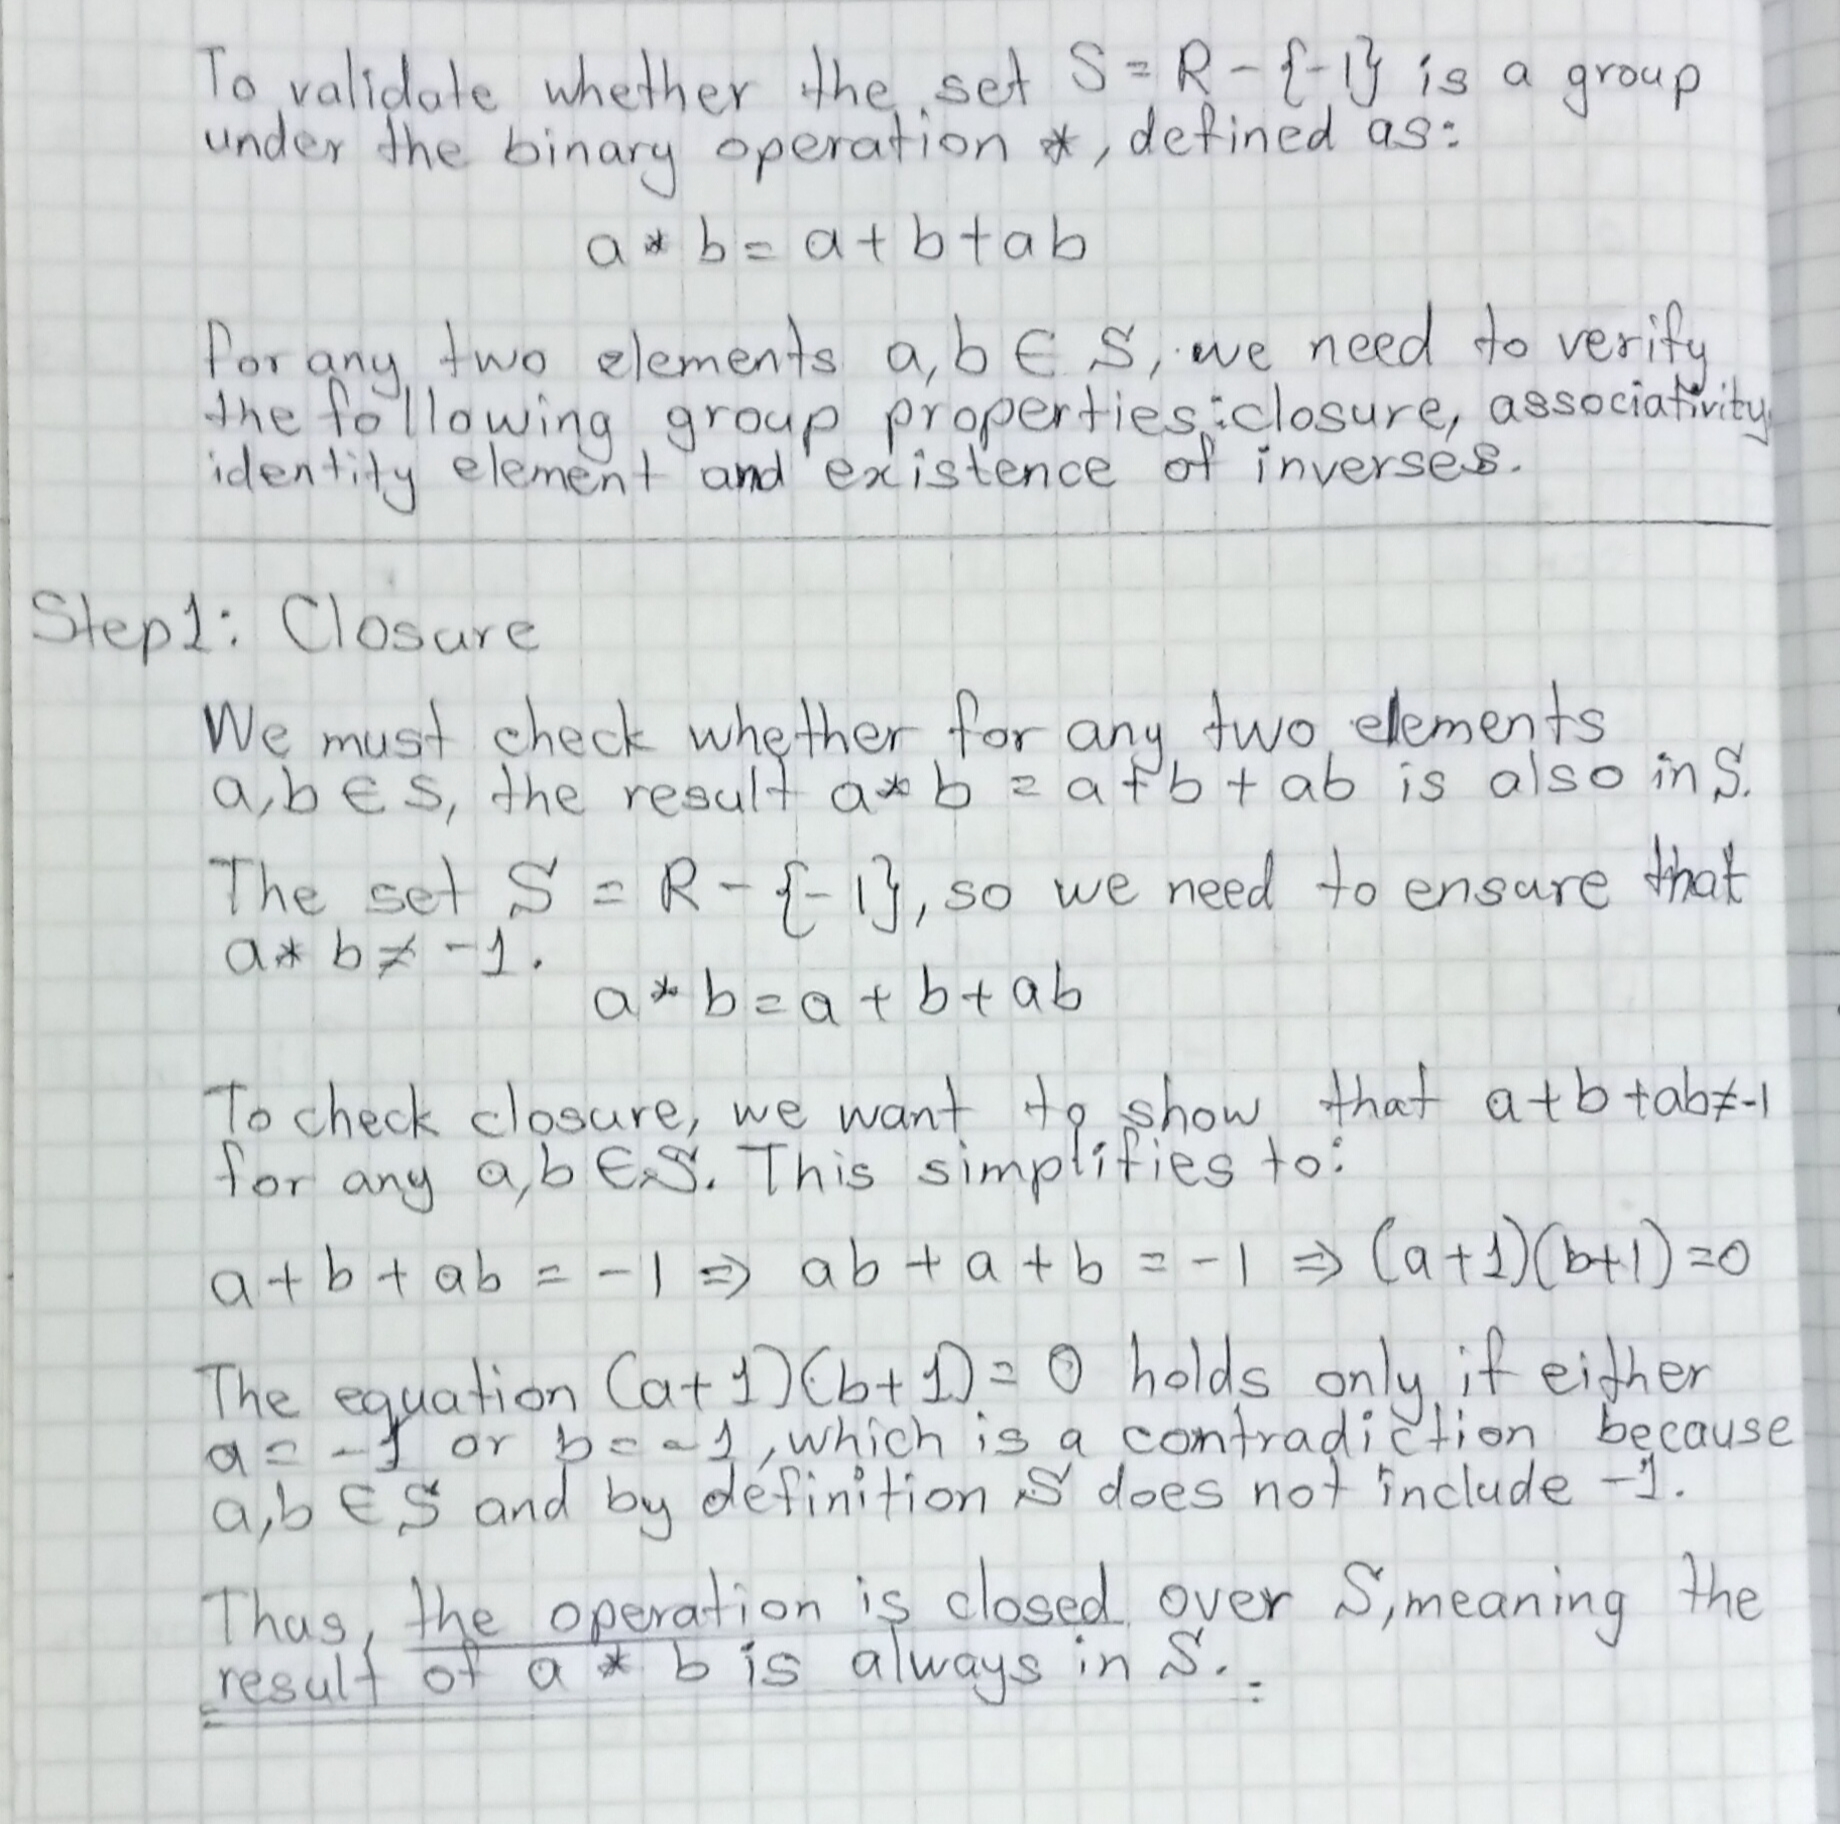 To validate whether the set S = R - {-1} is a group
under the binary operation *, defined as:
a * b = a + b + ab
for any two elements a, b ∈ S, we need to verify
the following group properties: closure, associativity
identity element and existence of inverses.
Step 1: Closure
We must check whether for any two elements
a, b ∈ S, the result a * b = a + b + ab is also in S.
The set S = R - {-1}, so we need to ensure that
a * b ≠ -1.
a * b = a + b + ab
To check closure, we want to show that a + b + ab ≠ -1
for any a, b ∈ S. This simplifies to:
a + b + ab = -1 ⇒ ab + a + b = -1 ⇒ (a+1)(b+1) = 0
The equation (a+1)(b+1) = 0 holds only if either
a = -1 or b = -1, which is a contradiction because
a, b ∈ S and by definition S does not include -1.
Thus, the operation is closed over S, meaning the
result of a * b is always in S.